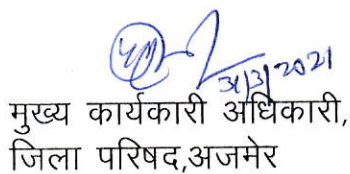 31/3/2021
मुख्य कार्यकारी अधिकारी,
जिला परिषद,अजमेर